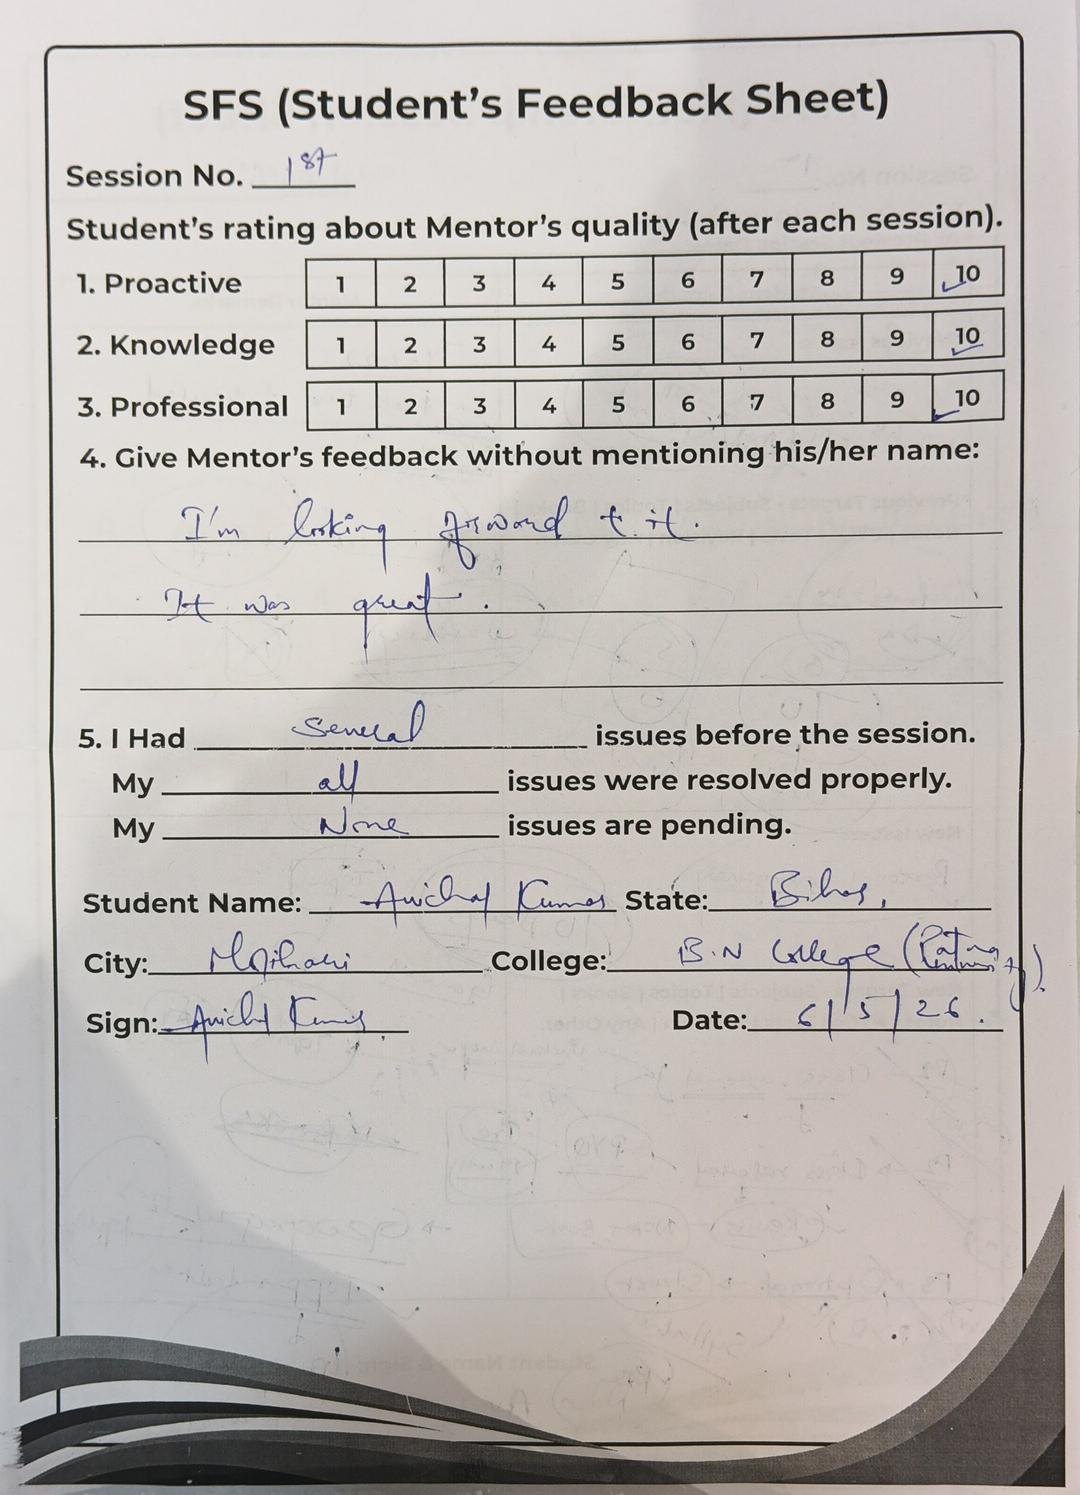 SFS (Student's Feedback Sheet)
Session No. 1st
Student's rating about Mentor's quality (after each session).
1. Proactive 1 2 3 4 5 6 7 8 9 10
2. Knowledge 1 2 3 4 5 6 7 8 9 10
3. Professional 1 2 3 4 5 6 7 8 9 10
4. Give Mentor's feedback without mentioning his/her name:
I'm looking forward to it.
It was great.
5. I Had several issues before the session.
My all issues were resolved properly.
My None issues are pending.
Student Name: Kumar State: Bihar,
City: Motihari College: B.N College (Patna
Sign: Date: 6/5/26.